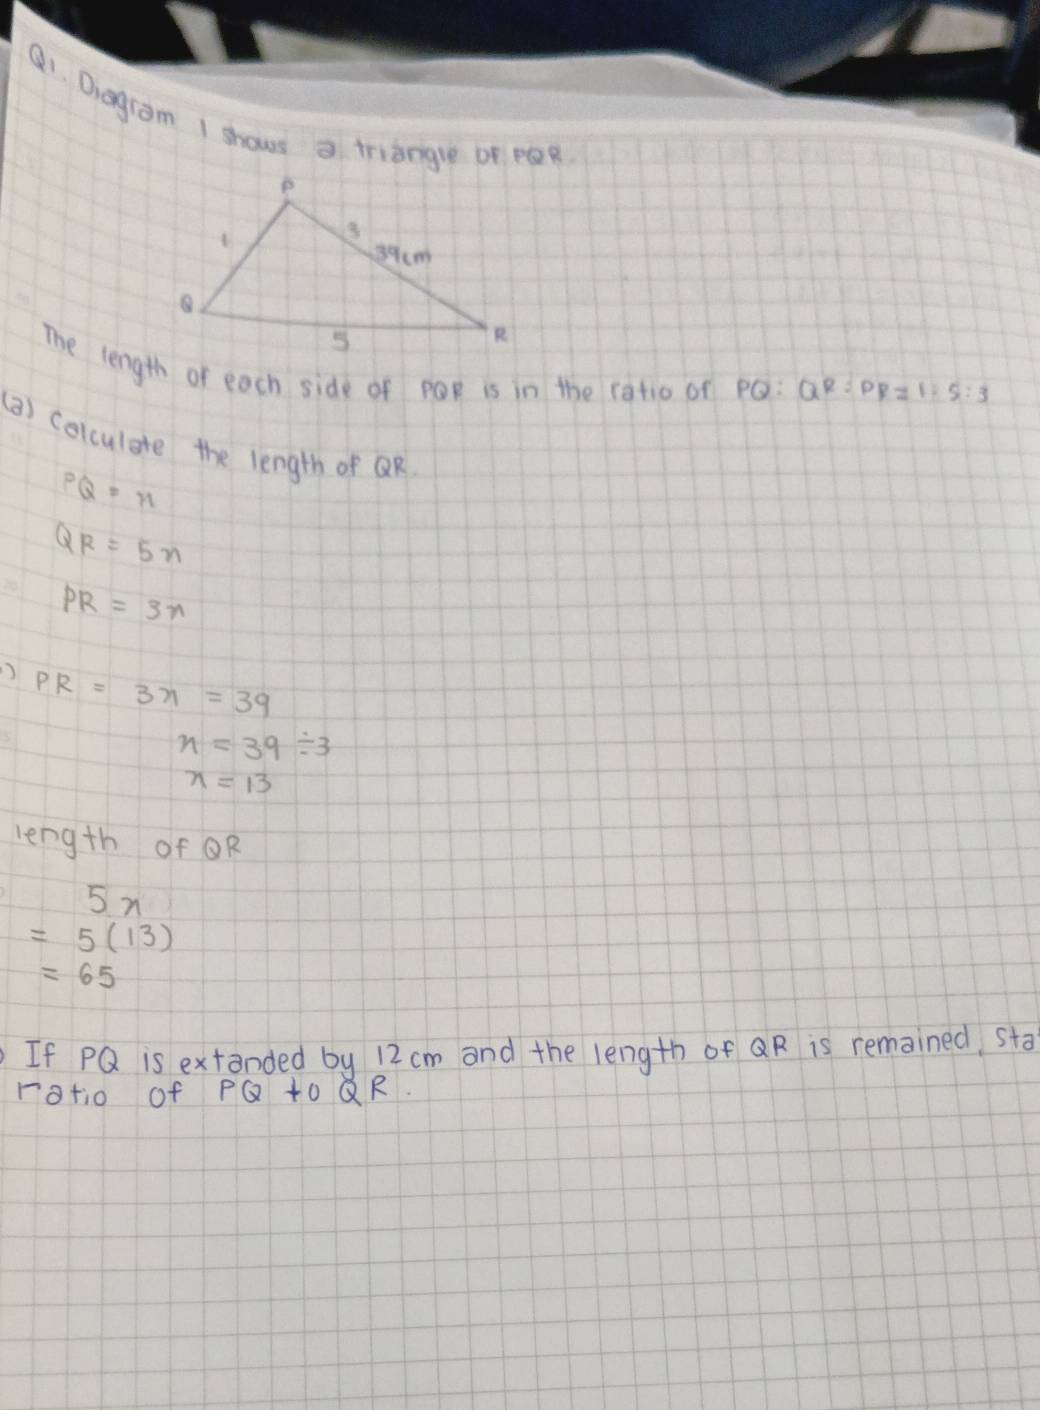 Q1. Diagram 1 shows a triangle of PQR.
P
1
3
39cm
Q
5
R
The length of each side of PQR is in the ratio of PQ : QR : PR = 1 : 5 : 3
(a) Calculate the length of QR.
PQ = x
QR = 5x
PR = 3x
) PR = 3x = 39
x = 39 ÷ 3
x = 13
length of QR
5x
= 5(13)
= 65
) If PQ is extanded by 12 cm and the length of QR is remained, sta
ratio of PQ to QR.